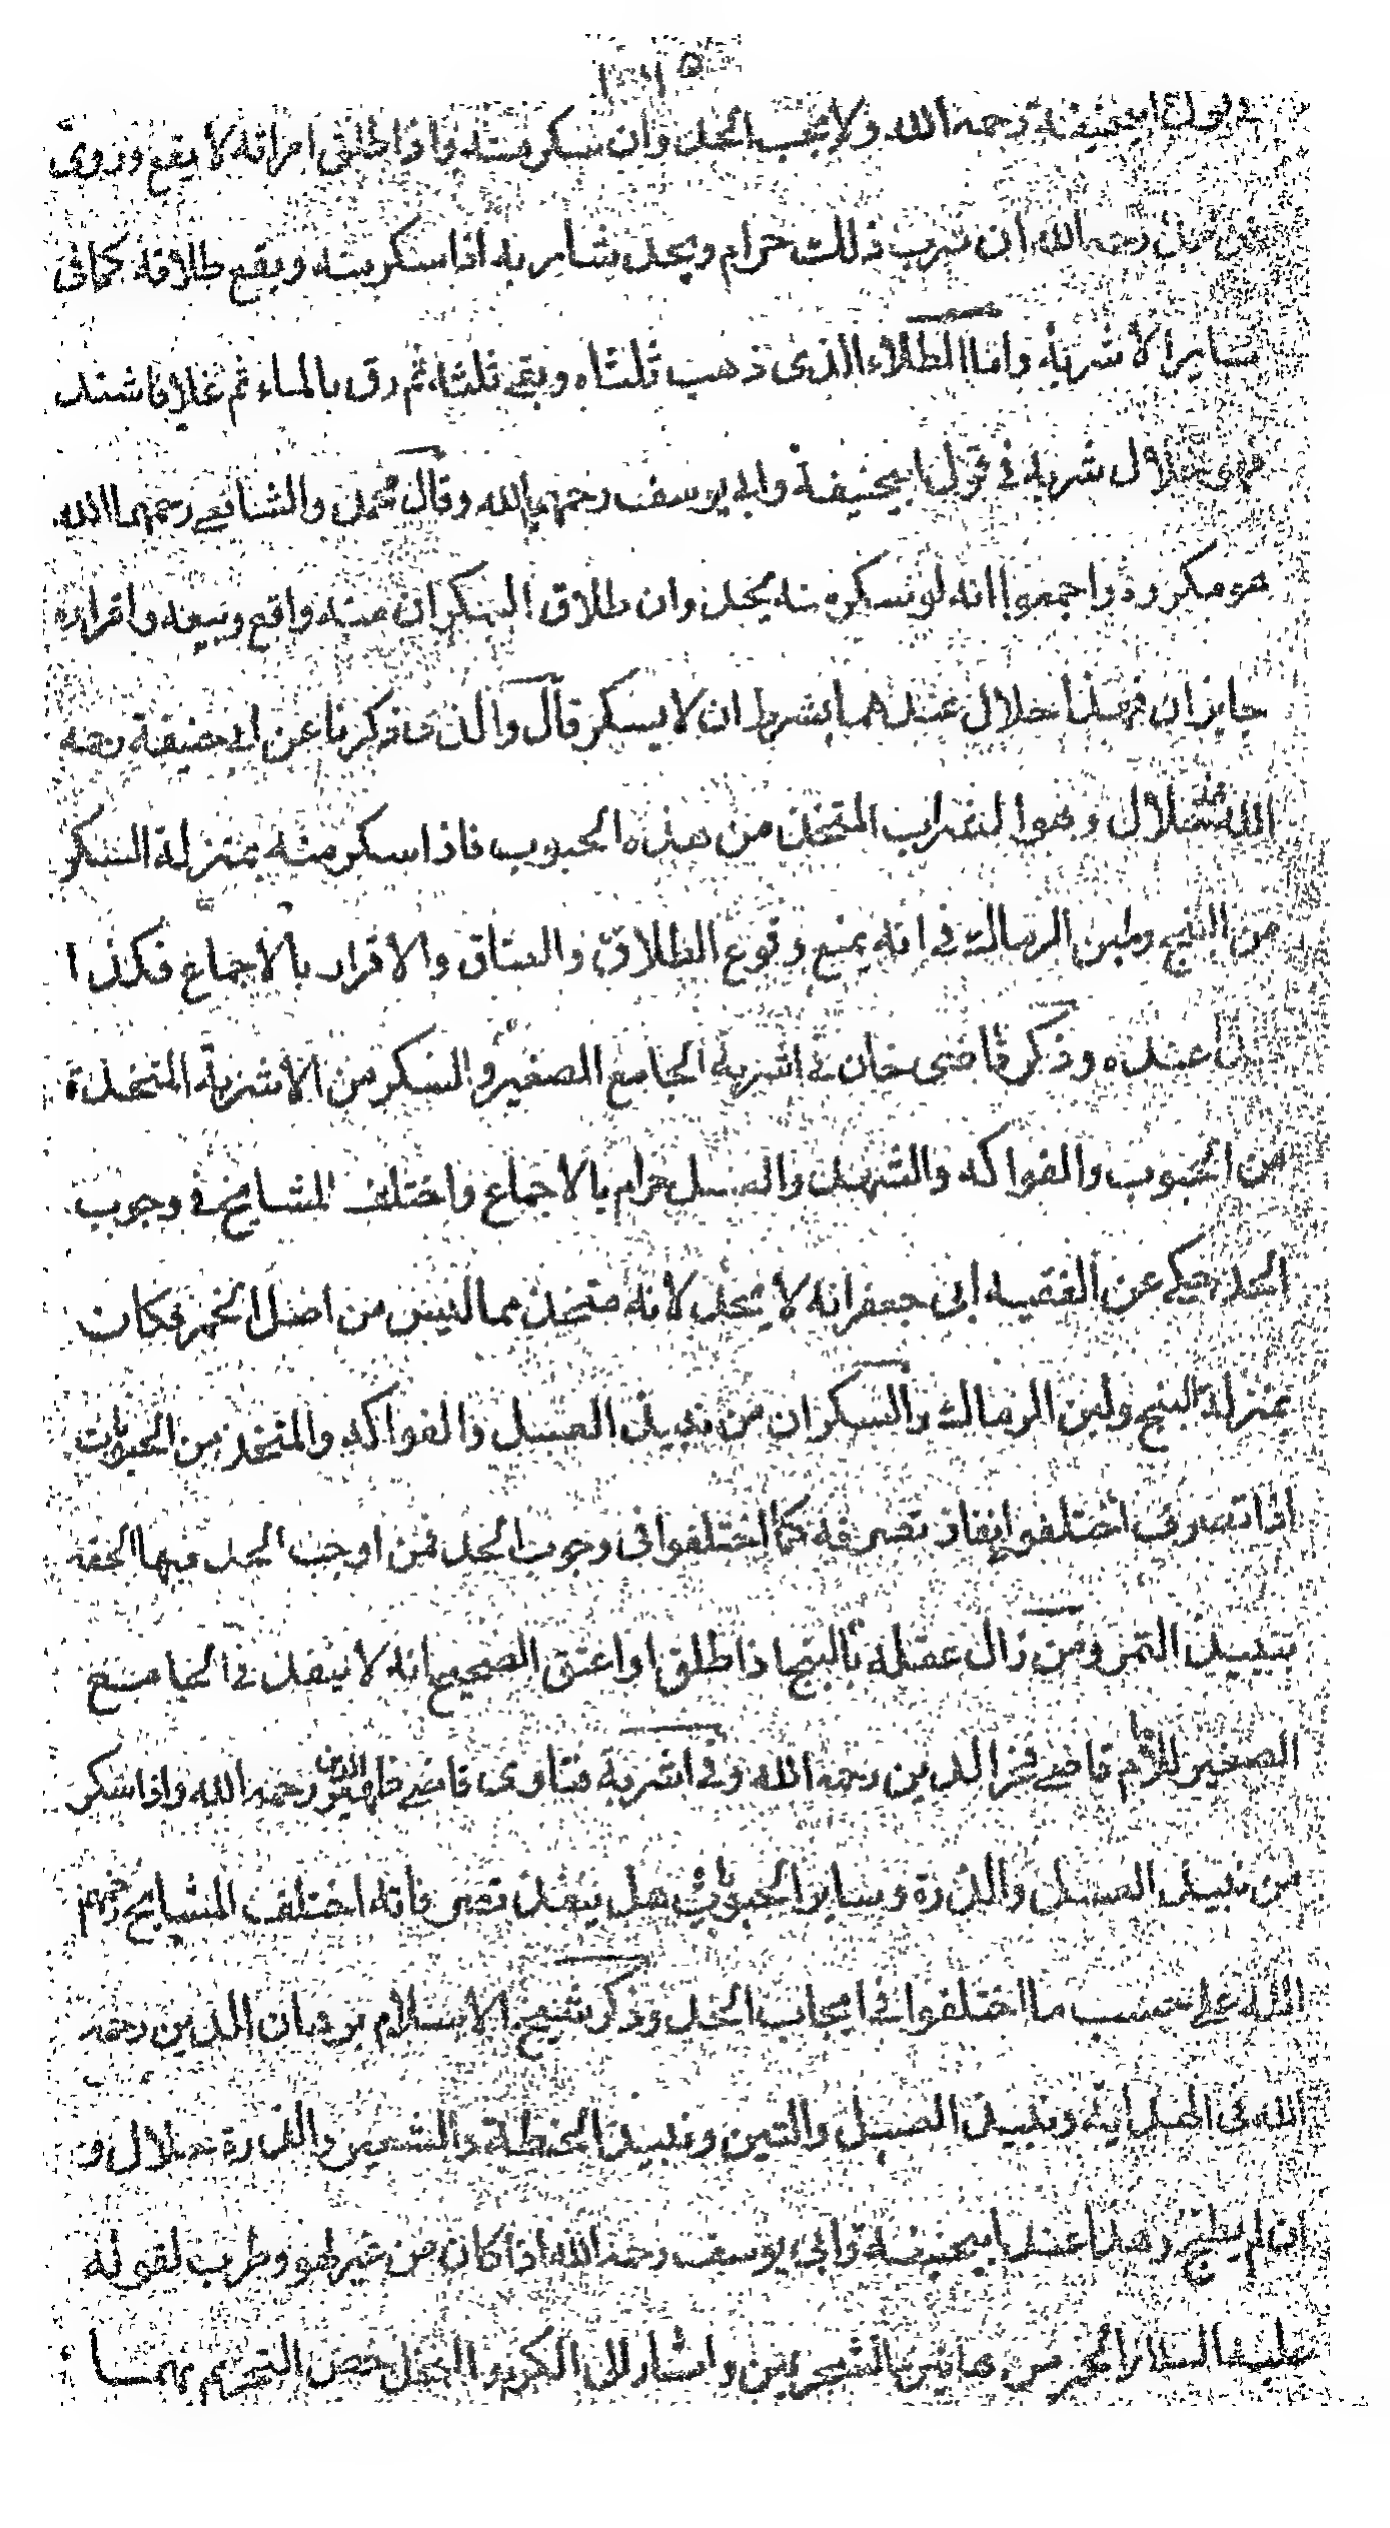 ابيحنيفة رحمه الله ولا يجب الحد وان سكر منه واذا طلق امراته لا يقع وروى
عن محمد رحمه الله ان شرب ذلك حرام ويحد شاربه اذا سكر منه ويقع طلاقه كما في
سائر الاشربة واما الطلاء الذى ذهب ثلثاه وبقى ثلثه ثم رق بالماء ثم غلا فاشتد
فهو حلال شربه في قول ابيحنيفة وابي يوسف رحمهما الله وقال محمد والشافعي رحمهما الله
هو مكروه واجمعوا انه لو سكر منه يحد وان طلاق السكران منه واقع وبيعه واقراره
جايز ان فهذا حلال عندهما بشرط ان لا يسكر قال والذى ذكرنا عن ابي حنيفة رحمه
الله حلال وهو الشراب المتخذ من هذه الحبوب فاذا سكر منه بمنزلة السكر
من البنج ولبن الرماك في انه يمنع وقوع الطلاق والعتاق والاقرار بالاجماع فكذا
عنده وذكر قاضى خان في اشربة الجامع الصغير والسكر من الاشربة المتخذة
من الحبوب والفواكه والشهد والعسل حرام بالاجماع واختلف المشايخ في وجوب
الحد حكي عن الفقيه ابى جعفر انه لا يحد لانه متخذ مما ليس من اصل الخمر فكان
بمنزلة البنج ولبن الرماك والسكران من نبيذ العسل والفواكه والمتخذ من الحبوبات
اذا تصرف اختلفوا بنفاذ تصرفه كما اختلفوا في وجوب الحد فمن اوجب الحد فيها الحقه
بنبيذ التمر ومن زال عقله بالبنج اذا طلق او اعتق الصحيح انه لا ينفذ في الجامع
الصغير للامام قاضي فخر الدين رحمه الله وفي اشربة فتاوى قاضي ظهير الدين رحمه الله واذا سكر
من نبيذ العسل والذرة وساير الحبوبات هل ينفذ تصرفاته اختلف المشايخ رحمهم
الله على حسب ما اختلفوا في ايجاب الحد وذكر شيخ الاسلام برهان الدين رحمه
الله في الهداية ونبيذ العسل والتين ونبيذ الحنطة والشعير والذرة حلال و
ان لم يطبخ وهذا عند ابيحنيفة وابي يوسف رحمه الله اذا كان من غير لهو وطرب لقوله
عليه السلام الخمر من هاتين الشجرتين واشار الى الكرم والنخل خص التحريم بهما